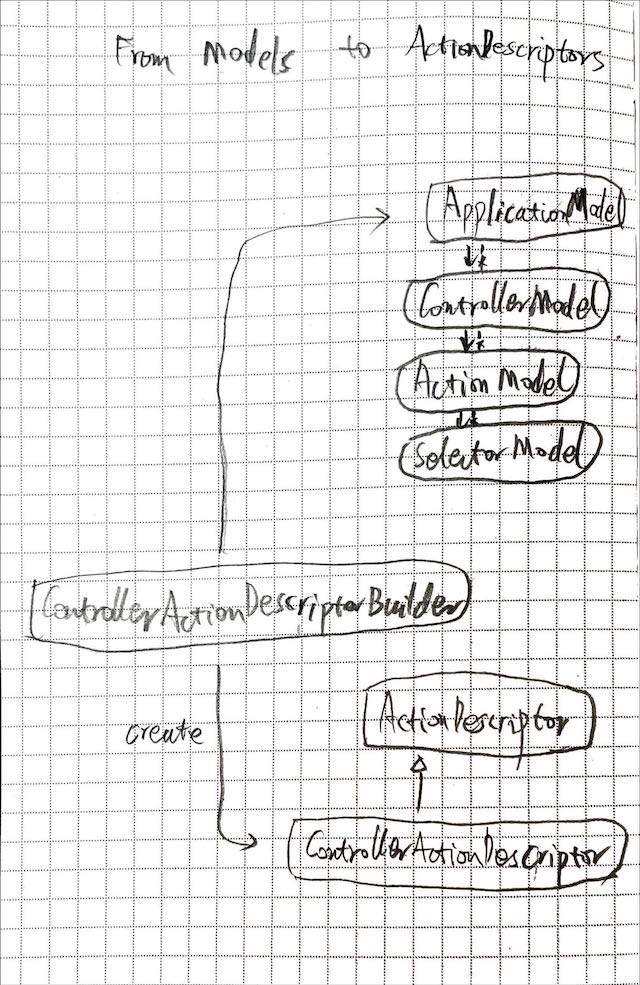 From Models to ActionDescriptors
ApplicationModel
*
ControllerModel
*
Action Model
*
Selector Model
ControllerActionDescriptorBuilder
create
ActionDescriptor
ControllerActionDescriptor